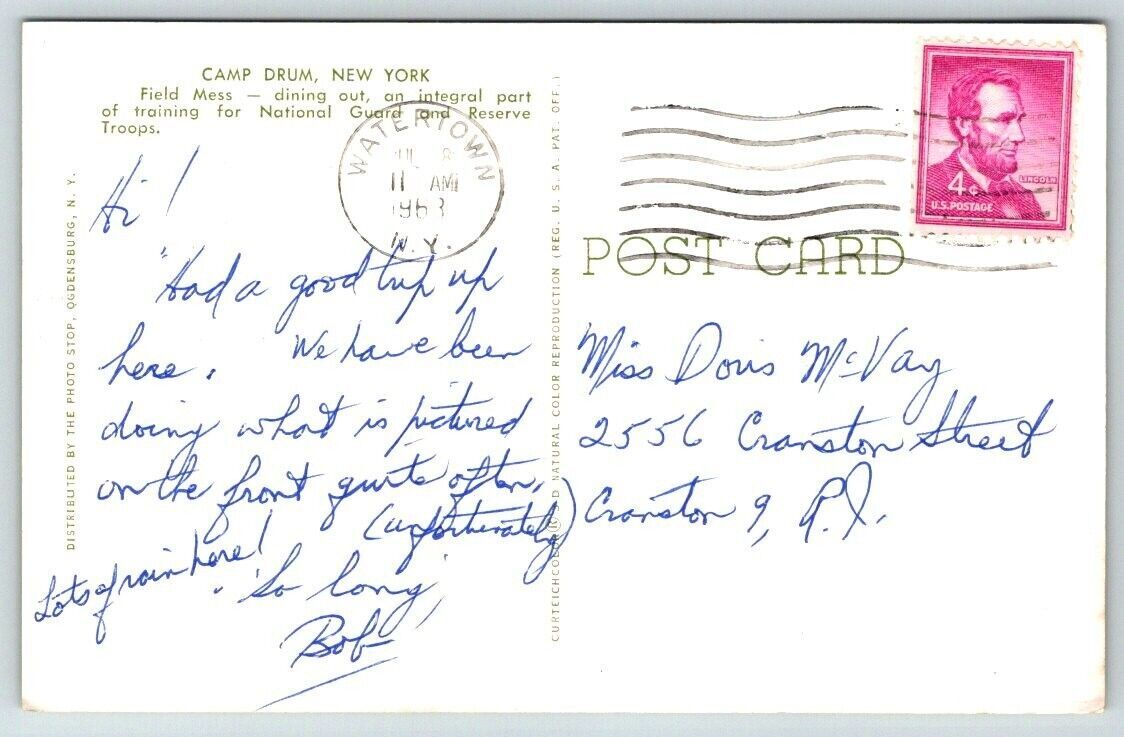 CAMP DRUM, NEW YORK
Field Mess — dining out, an integral part
of training for National Guard and Reserve
Troops.
WATERTOWN
JUL 8
11 AM
1963
N.Y.
LINCOLN
4¢
U.S. POSTAGE
POST CARD
Hi!
Had a good trip up
here. We have been
doing what is pictured
on the front quite often.
(unfortunately)
Lots of rain here!
'So long',
Bob
Miss Doris McVay
2556 Cranston Street
Cranston 9, R.I.
DISTRIBUTED BY THE PHOTO STOP, OGDENSBURG, N. Y.
CURTEICHCOLOR® 3-D NATURAL COLOR REPRODUCTION (REG. U. S. A. PAT. OFF.)